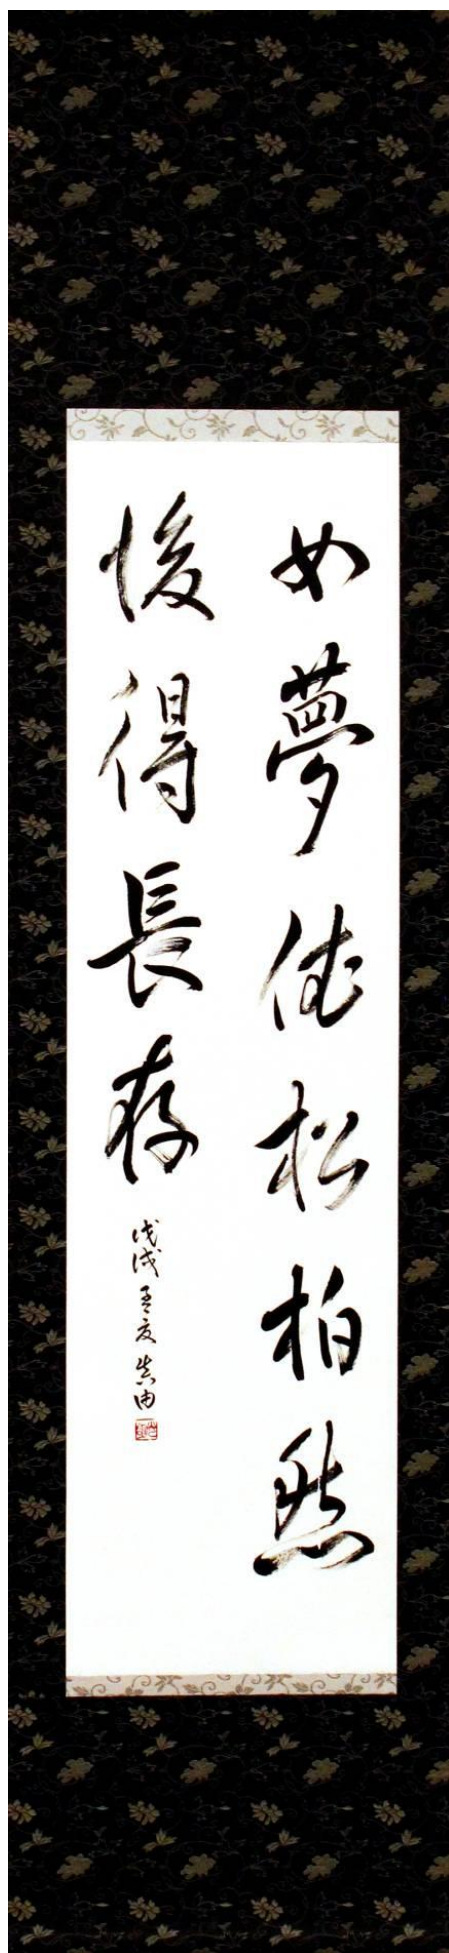 如夢松柏然
後得長存
戊戌孟夏真由